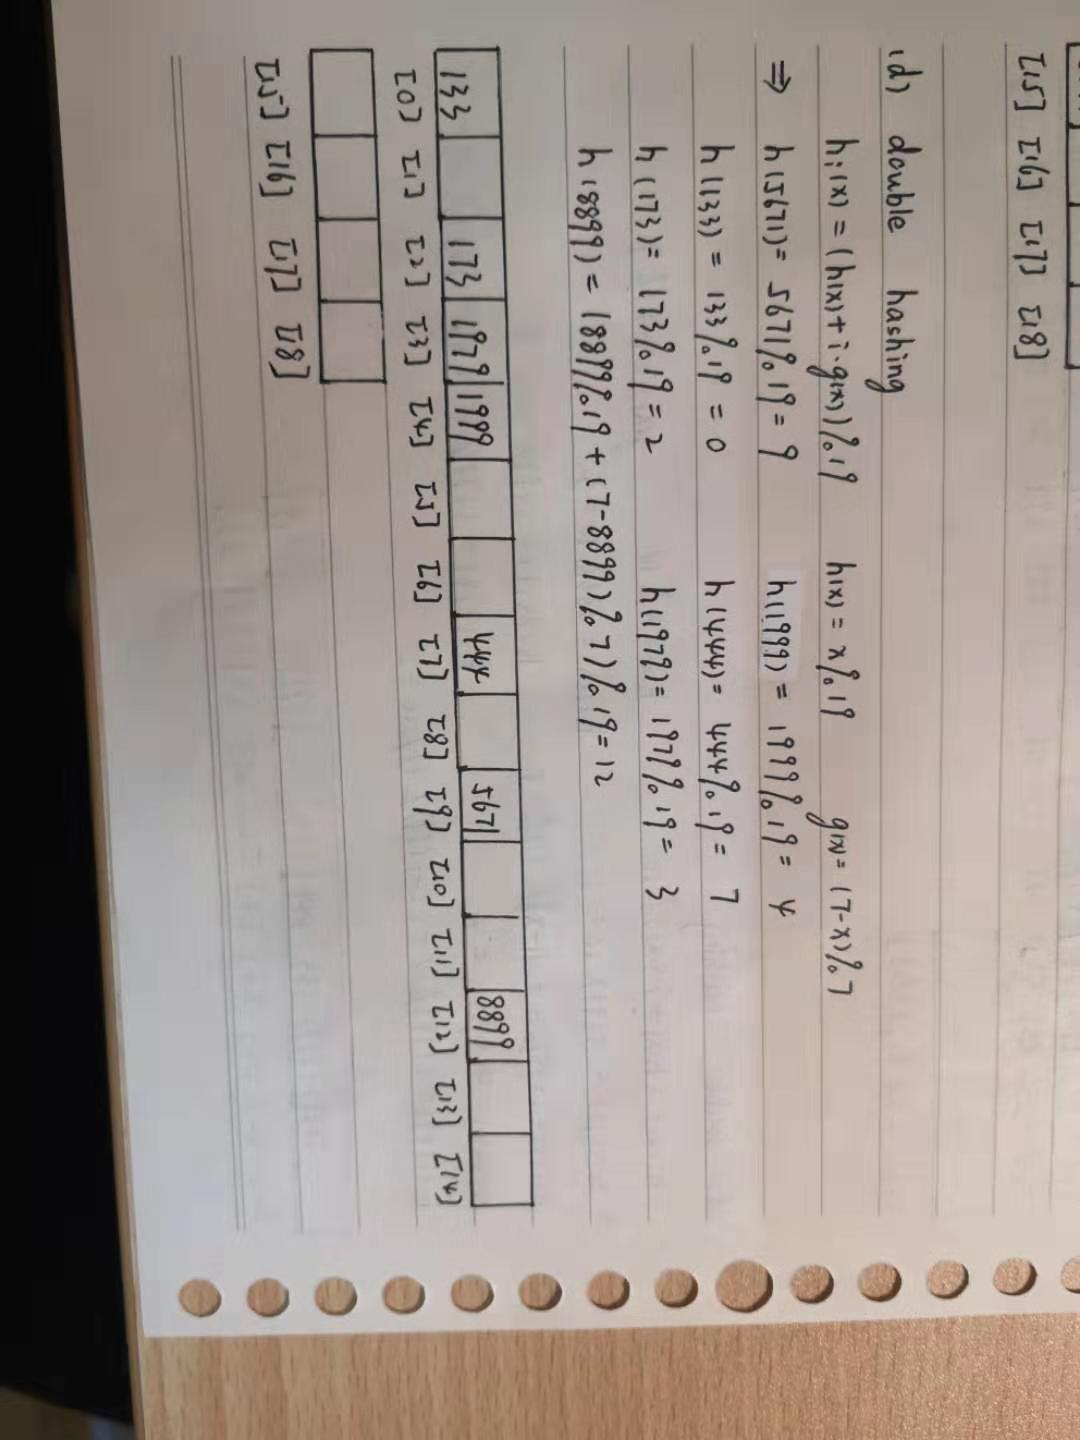 [15] [16] [17] [18]
(d) double hashing
hᵢ(x) = (h(x)+i·g(x))%19 h(x) = x%19 g(x) = (7-x)%7
⇒ h(5671) = 5671%19 = 9 h(1999) = 1999%19 = 4
h(133) = 133%19 = 0 h(444) = 444%19 = 7
h(173) = 173%19 = 2 h(1979) = 1979%19 = 3
h(8899) = (8899%19 + (7-8899)%7)%19 = 12
133 173 1979 1999 444 5671 8899
[0] [1] [2] [3] [4] [5] [6] [7] [8] [9] [10] [11] [12] [13] [14]
[15] [16] [17] [18]